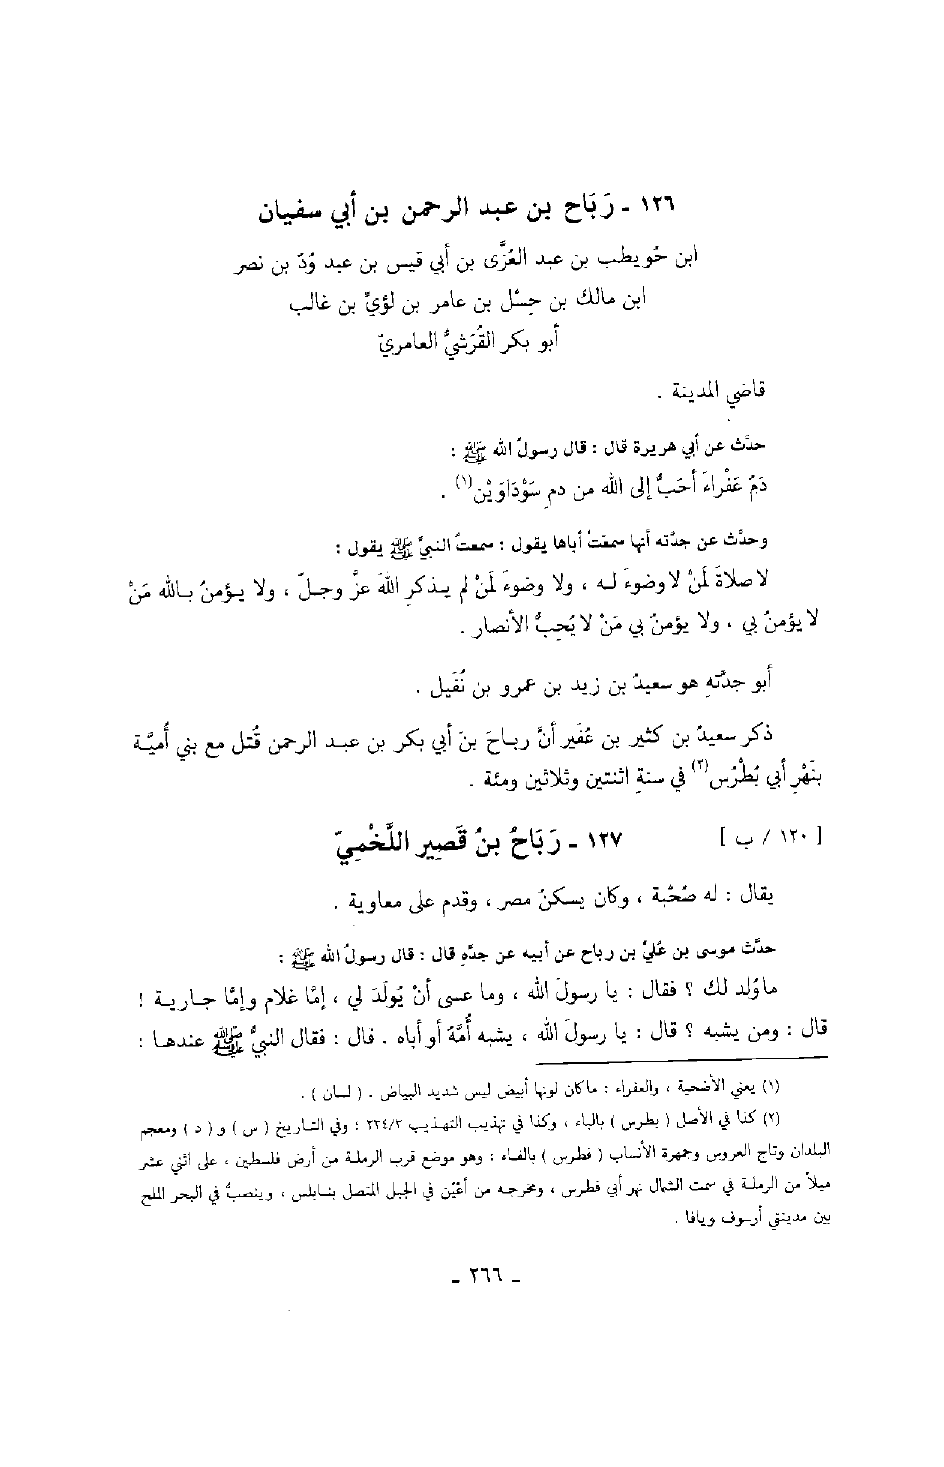 ١٢٦ ـ رَبَاح بن عبد الرحمن بن أبي سفيان
ابن حُويطب بن عبد العُزَّى بن أبي قيس بن عبد وُدّ بن نصر
ابن مالك بن حِسْل بن عامر بن لؤيِّ بن غالب
أبو بكر القُرَشيُّ العامريّ
قاضي المدينة .
حدَّث عن أبي هريرة قال : قال رسولُ الله ﷺ :
دَمُ عَفْراءَ أحَبُّ إلى الله من دمِ سَوْدَاوَيْن(١) .
وحدَّث عن جدَّته أنها سمعَتْ أباها يقول : سمعتُ النبيَّ ﷺ يقول :
لا صلاةَ لمَنْ لا وضوءَ له ، ولا وضوءَ لمَنْ لم يذكرِ اللهَ عزَّ وجلّ ، ولا يؤمنُ بالله مَنْ
لا يؤمنُ بي ، ولا يؤمنُ بي مَنْ لا يُحِبُّ الأنصار .
أبو جدَّتهِ هو سعيدُ بن زيد بن عمرو بن نُفَيل .
ذكر سعيدُ بن كثير بن عُفَير أنَّ رباحَ بنَ أبي بكر بن عبد الرحمن قُتل مع بني أُميَّة
بنَهْرِ أبي بُطْرُس(٢) في سنةِ اثنتين وثلاثين ومئة .
[ ١٢٠ / ب ] ١٢٧ ـ رَبَاحُ بنُ قَصِير اللَّخْمِيّ
يقال : له صُحْبة ، وكان يسكنُ مصر ، وقدم على معاوية .
حدَّث موسى بن عُلَيّ بن رباح عن أبيه عن جدِّهِ قال : قال رسولُ الله ﷺ :
ماوُلد لك ؟ فقال : يا رسولَ الله ، وما عسى أنْ يُولَدَ لي ، إمَّا غلام وإمَّا جارية !
قال : ومن يشبه ؟ قال : يا رسولَ الله ، يشبه أُمَّهُ أو أباه . قال : فقال النبيُّ ﷺ عندها :
(١) يعني الأضحية ، والعفراء : ماكان لونها أبيض ليس شديد البياض . ( لسان ) .
(٢) كذا في الأصل ( بطرس ) بالباء ، وكذا في تهذيب التهذيب ٢٣٤/٣ ؛ وفي التاريخ ( س ) و ( د ) ومعجم
البلدان وتاج العروس وجمهرة الأنساب ( فطرس ) بالفاء : وهو موضع قرب الرملة من أرض فلسطين ، على اثني عشر
ميلاً من الرملة في سمت الشمال نهر أبي فطرس ، ومخرجه من أعْيُن في الجبل المتصل بنابلس ، وينصبُّ في البحر الملح
بين مدينتي أرسوف ويافا .
ـ ٢٦٦ ـ